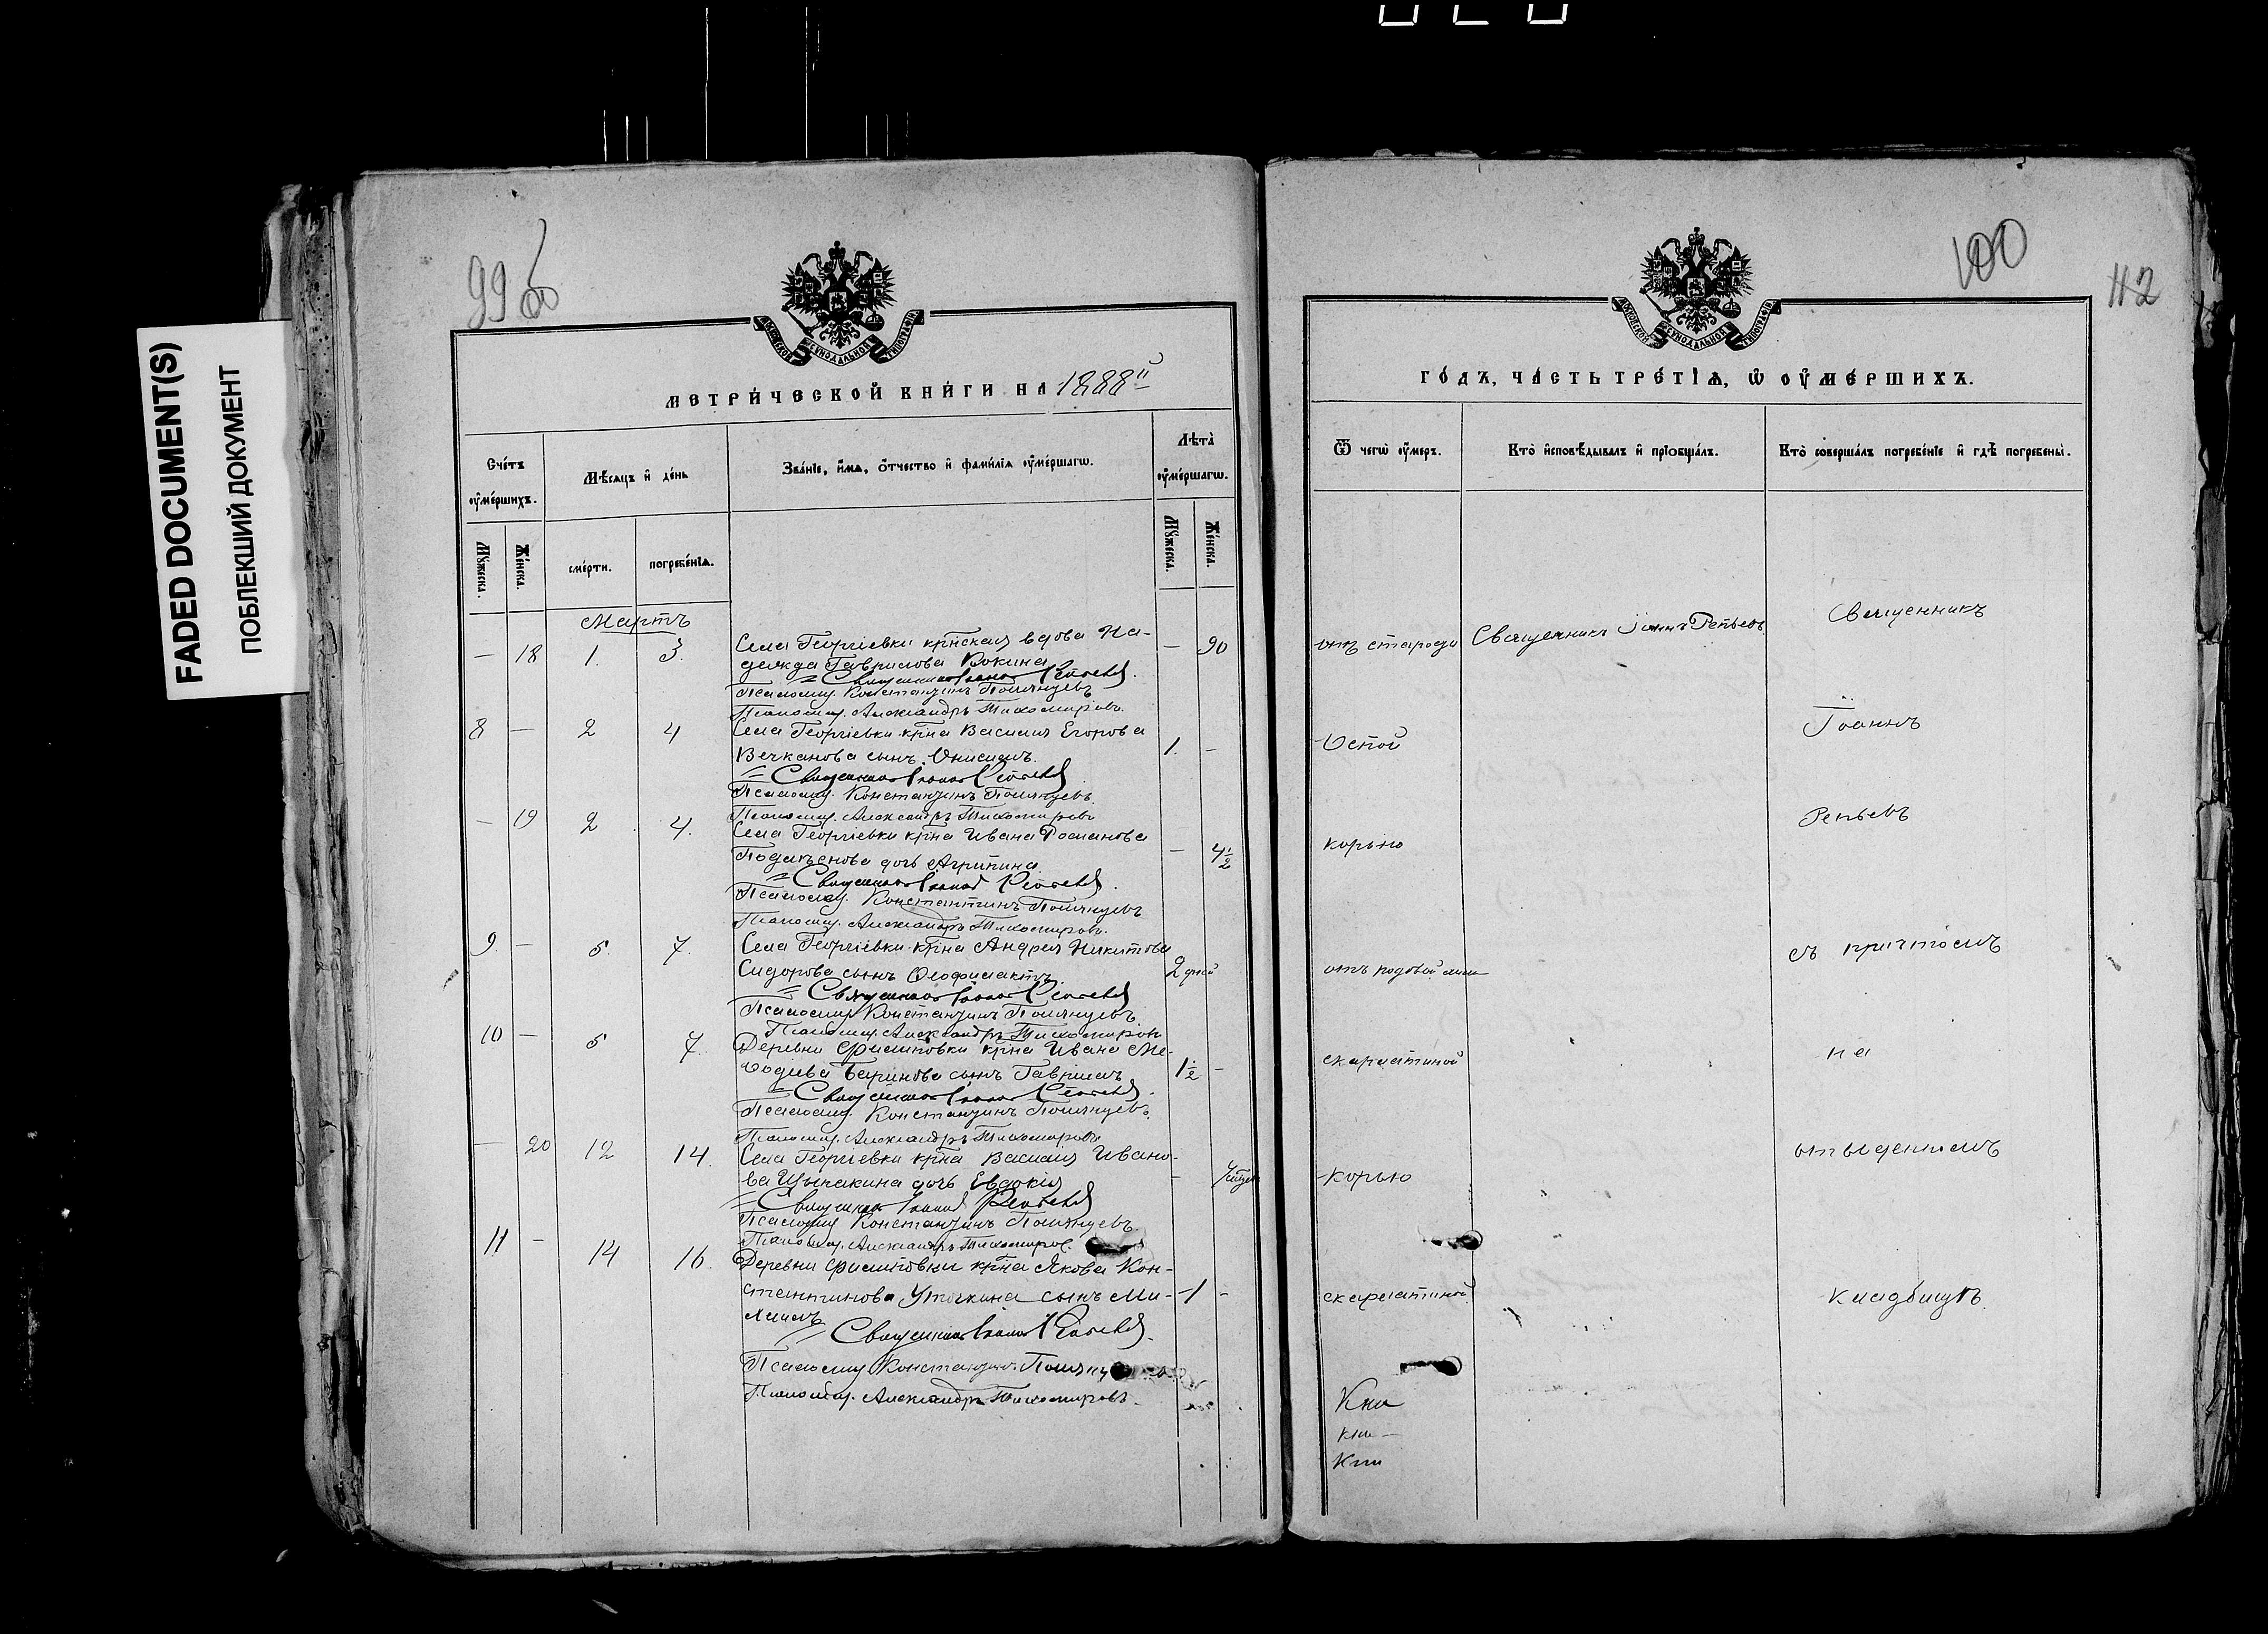 FADED DOCUMENT(S)
ПОБЛЕКШИЙ ДОКУМЕНТ
99 об
МЕТРИ́ЧЕСКОЙ КНИ́ГИ НА 1888й
Сче́тъ оумéршихъ.
Мѣсяцъ и де́нь
Зва́нїе, и́мя, о́тчество и фами́лїя оуме́ршагѡ.
Лѣта̀ оуме́ршагѡ.
Мꙋжеска.
Же́нска.
сме́рти.
погребе́нїѧ.
Мꙋжеска.
Же́нска.
Мартъ
— 18 1. 3. Села Георгіевки крнская вдова На- — 90
дежда Гаврилова Кокина
= Священникъ Іоаннъ Репьевъ.
Псаломщ. Константинъ Полянцевъ
Псаломщ. Александръ Тихомировъ.
8 — 2 4 Села Георгіевки крна Василія Егорова
Вечканова сынъ Онисимъ. 1. -
= Священникъ Іоаннъ Репьевъ
Псаломщ. Константинъ Полянцевъ.
Псаломщ. Александръ Тихомировъ
— 19 2 4. Села Георгіевки крна Ивана Романова
дочь Агрипина — 4½
= Священникъ Іоаннъ Репьевъ.
Псаломщ. Константинъ Полянцевъ
Псаломщ. Александръ Тихомировъ.
9. — 5. 7. Села Георгіевки крна Андрея Никитова
Сидорова сынъ Ѳеофилактъ 2 дней
= Священникъ Іоаннъ Репьевъ
Псаломщ Константинъ Полянцевъ
Псаломщ. Александръ Тихомировъ
10 — 5 7. Деревни Филиповки крна Ивана Ме-
ѳодіева Баринова сынъ Гавріилъ 1½ -
= Священникъ Іоаннъ Репьевъ.
Псаломщ. Константинъ Полянцевъ.
Псаломщ. Александръ Тихомировъ
— 20 12 14. Села Георгіевки крна Василія Ивано-
ва Цыпакина дочь Евдокія -
= Священникъ Іоаннъ Репьевъ
Псаломщ Константинъ Полянцевъ
Псаломщ. Александръ Тихомиров.
11 - 14 16. Деревни Филиповки крна Якова Кон-
стантинова Уточкина сынъ Ми- 1 -
хаилъ
= Священникъ Іоаннъ Репьевъ.
Псаломщ Константинъ Полянц
Псаломщ. Александръ Тихомировъ.
100
112
ГО́ДЪ, ЧА́СТЬ ТРЕ́ТЇѦ, Ѡ ОУМЕ́РШИХЪ.
Ѿ чегѡ̀ оу́меръ.
Кто̀ и́сповѣдывалъ и прїобща́лъ.
Кто̀ соверша́лъ погребе́нїе и гдѣ̀ погребены̀.
отъ старости Священникъ Іоаннъ Репьевъ Священникъ
Оспой Іоаннъ
корью Репьевъ
отъ родовой съ причтомъ
скарлатиной на
корью отведенномъ
скарлатиной кладбищѣ.